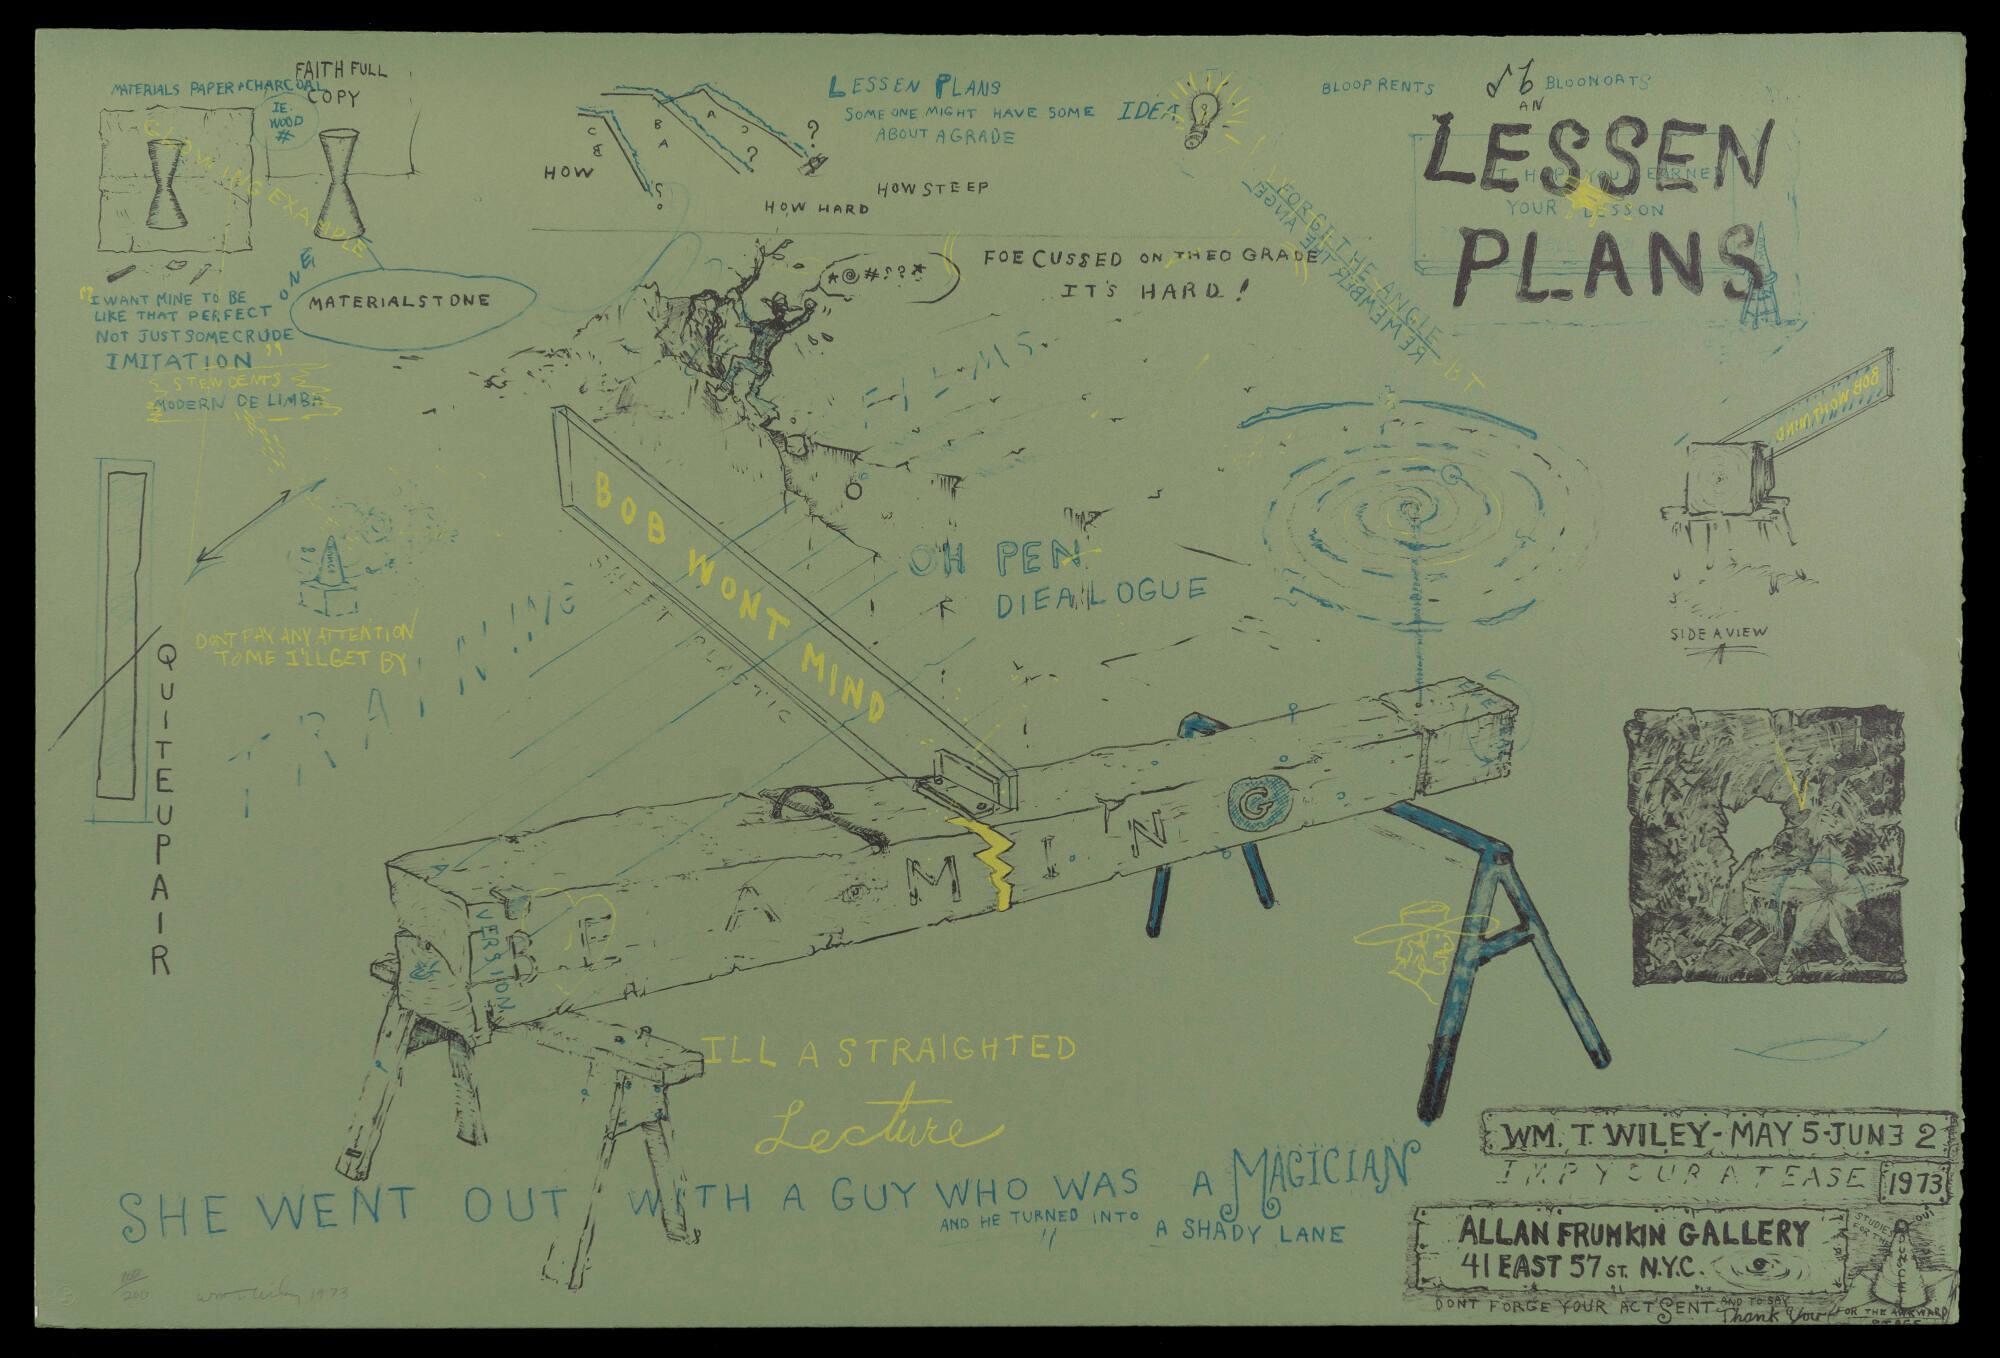 MATERIALS PAPER + CHARCOAL
FAITH FULL
COPY
IE.
WOOD
#
GLOWING EXAMPLE
"I WANT MINE TO BE
LIKE THAT PERFECT
NOT JUST SOME CRUDE
IMITATION"
STEWDENTS
MODERN DE LIMBA
ONE
MATERIALSTONE
HOW
C
B
B
A
A
?
?
HOW HARD
HOW STEEP
LESSEN PLANS
SOME ONE MIGHT HAVE SOME IDEA
ABOUT A GRADE
BLOOP RENTS
AN
BLOONOATS
LESSEN
PLANS
YOUR LESSON
I FORGIT THE ANGLE BT
REMEMBER THE ANGEL
*@#??*
FOE CUSSED ON THEO GRADE
IT'S HARD!
FILMS
BOB WONT MIND
SHEET PLASTIC
OH PEN
DIEALOGUE
BOB WONT MIND
SIDE A VIEW
QUITEUPAIR
DUNCE
DONT PAY ANY ATTENTION
TO ME I'LL GET BY
TRAINING
BEAMING
VERSION
ILL A STRAIGHTED
Lecture
SHE WENT OUT WITH A GUY WHO WAS A MAGICIAN
AND HE TURNED INTO A SHADY LANE
WM. T. WILEY - MAY 5 - JUNE 2
IMPYOURATEASE
1973
ALLAN FRUMKIN GALLERY
41 EAST 57 ST. N.Y.C.
STUDIES
FOR THE
DUNCE
OUT
DONT FORGE YOUR ACT SENT AND TO SAY
Thank You
FOR THE AWKWARD
STAGE
100/200
Wm T Wiley 1973